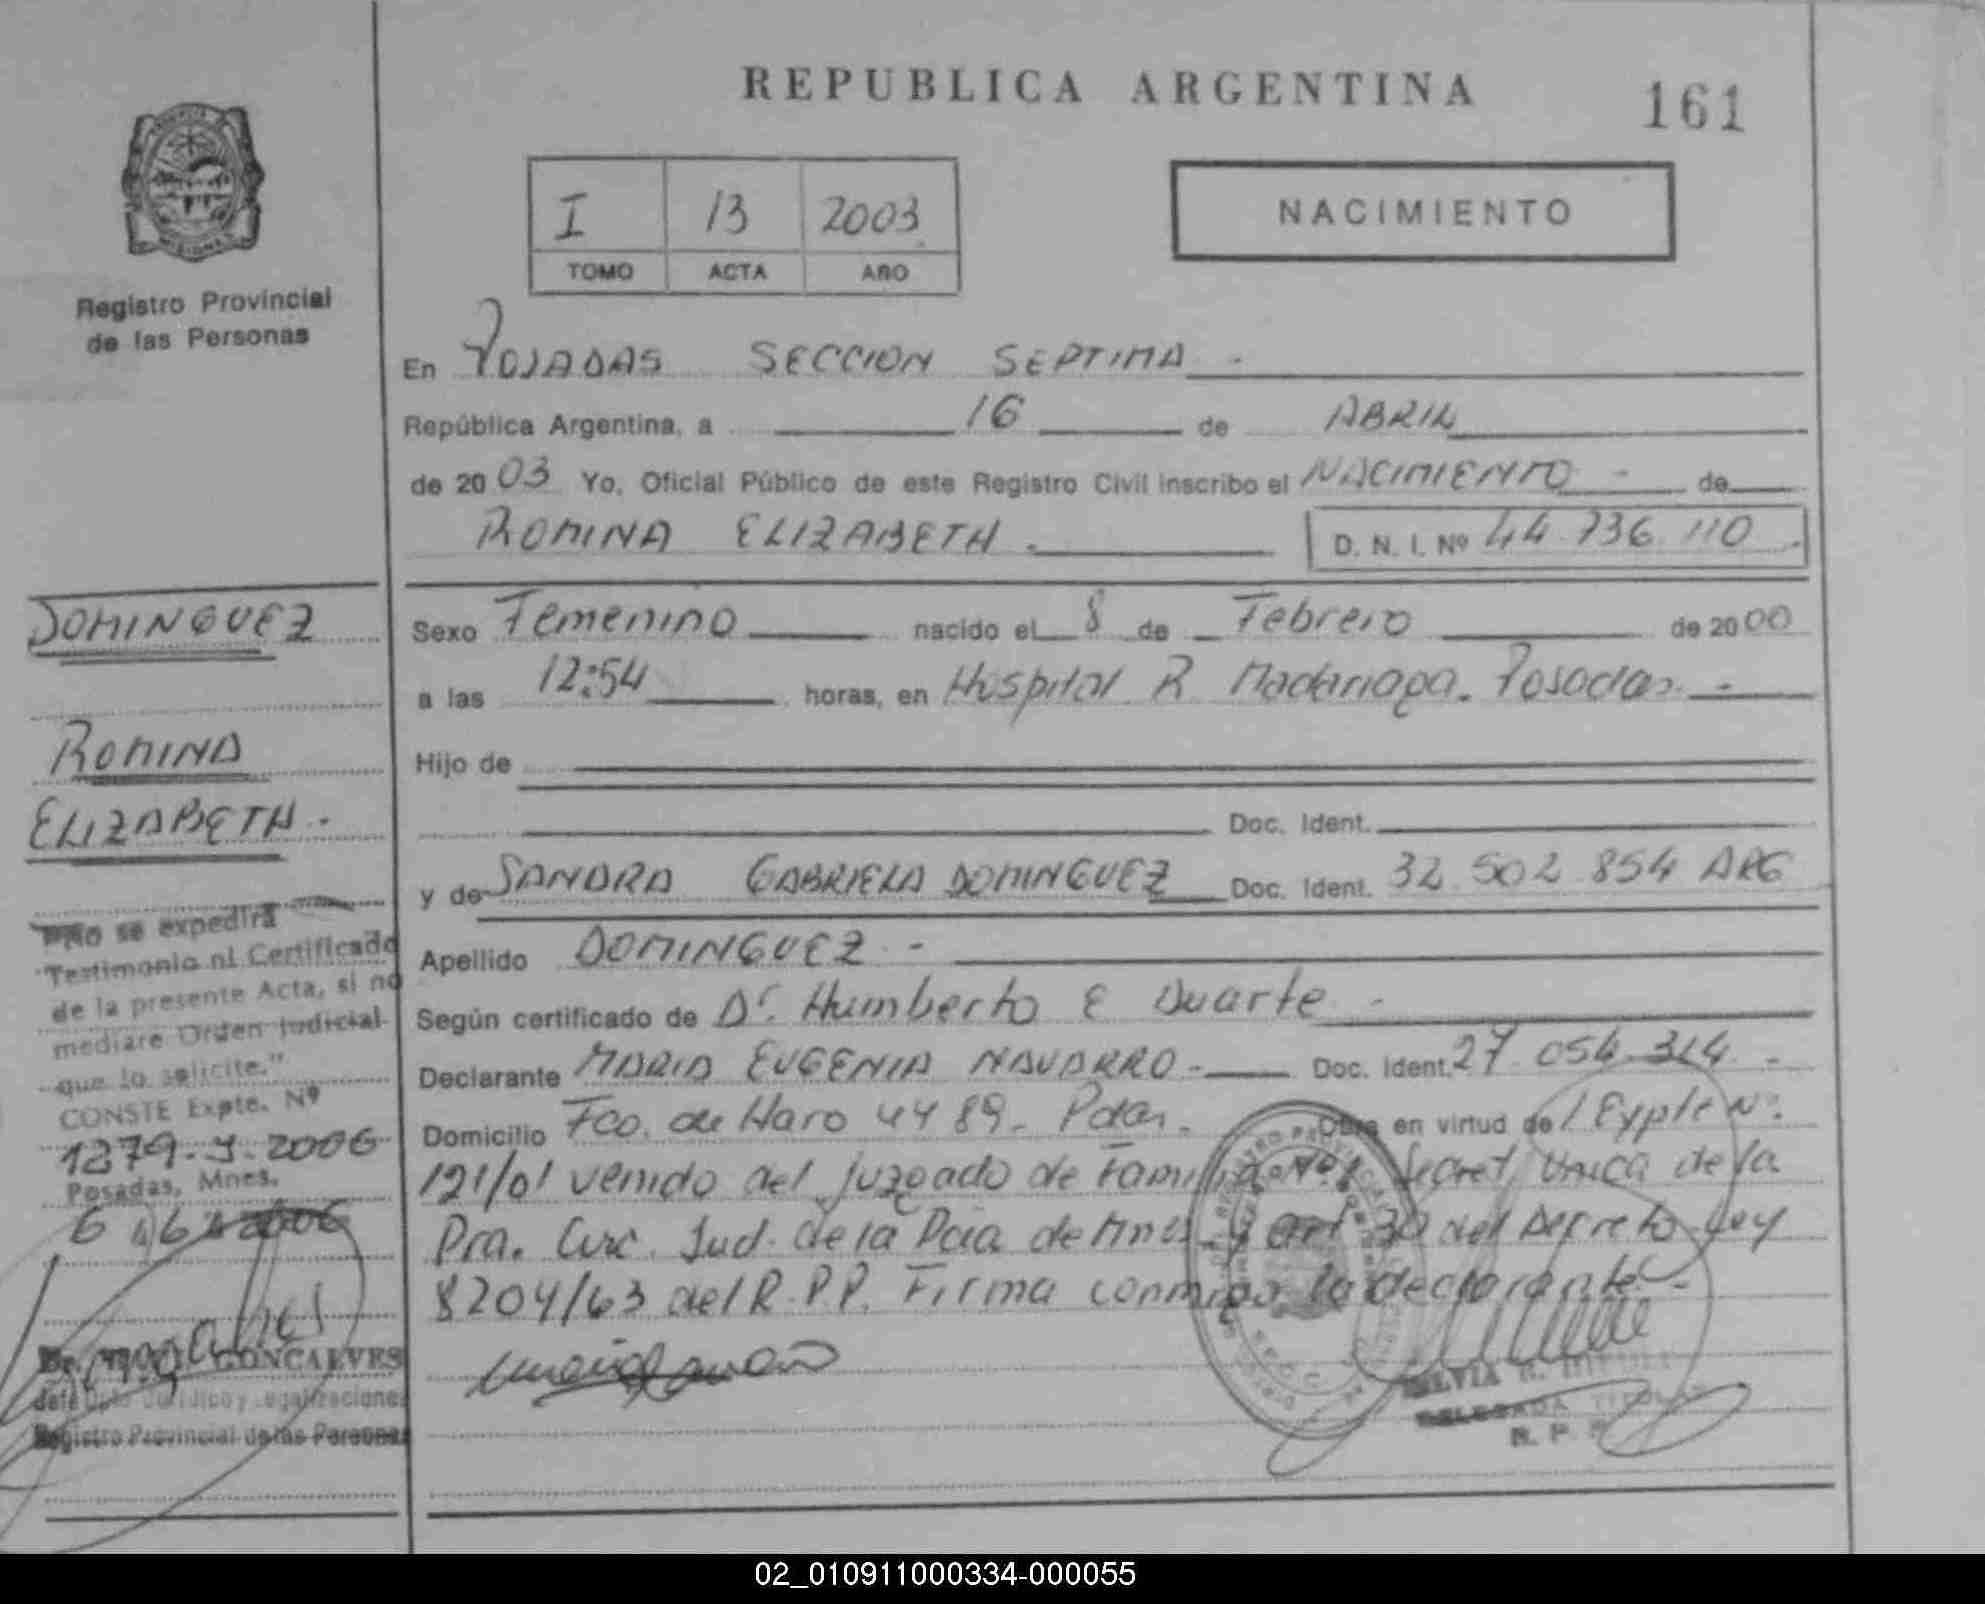 REPUBLICA ARGENTINA
161
I 13 2003
TOMO ACTA AÑO
NACIMIENTO
Registro Provincial
de las Personas
En POSADAS SECCION SEPTIMA -
República Argentina, a 16 de ABRIL
de 2003 Yo, Oficial Público de este Registro Civil inscribo el NACIMIENTO - de
ROMINA ELIZABETH. D. N. I. Nº 44.736.110
Sexo Femenino nacido el 8 de Febrero de 2000
a las 12:54 horas, en Hospital R Madariaga. Posadas. -
Hijo de
Doc. Ident.
y de SANDRA GABRIELA DOMINGUEZ Doc. Ident. 32.502.854 ARG
Apellido DOMINGUEZ -
Según certificado de Dr. Humberto E Duarte -
Declarante MARIA EUGENIA NAVARRO - Doc. Ident. 27.054.314 -
Domicilio Fco. de Haro 4489 - Pdas. - Obra en virtud de / Expte Nº.
121/01 venido del Juzgado de Familia Nº 1 Secret. Unica de la
Pra. Circ. Jud. de la Pcia de Mnes y art 30 del Decreto Ley
8204/63 del R.P.P. Firma conmigo la declarante. -
SILVIA R.
DELEGADA TITULAR
R. P. P.
DOMINGUEZ
ROMINA
ELIZABETH.
"No se expedirá
Testimonio ni Certificado
de la presente Acta, si no
mediare Orden Judicial
que lo solicite."
CONSTE Expte. Nº
1279-J-2006
Posadas, Mnes.
GONCALVES
Jefe Dpto Jurídico y Legalizaciones
Registro Provincial de las Personas
02_010911000334-000055